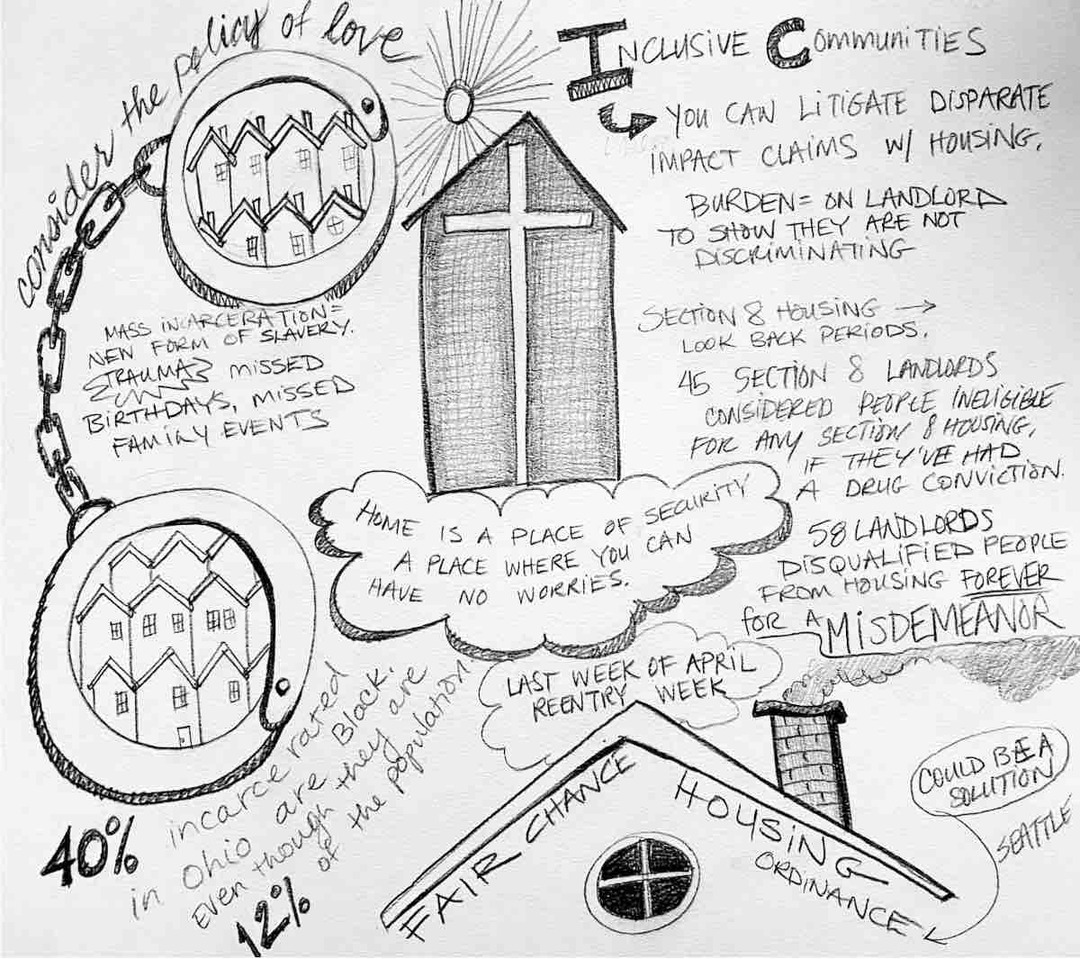 consider the policy of love
INCLUSIVE COMMUNITIES
YOU CAN LITIGATE DISPARATE
IMPACT CLAIMS W/ HOUSING.
BURDEN = ON LANDLORD
TO SHOW THEY ARE NOT
DISCRIMINATING
SECTION 8 HOUSING →
LOOK BACK PERIODS.
45 SECTION 8 LANDLORDS
CONSIDERED PEOPLE INELIGIBLE
FOR ANY SECTION 8 HOUSING,
IF THEY'VE HAD
A DRUG CONVICTION.
58 LANDLORDS
DISQUALIFIED PEOPLE
FROM HOUSING FOREVER
for A MISDEMEANOR
MASS INCARCERATION =
NEW FORM OF SLAVERY.
TRAUMA MISSED
BIRTHDAYS, MISSED
FAMILY EVENTS
HOME IS A PLACE OF SECURITY
A PLACE WHERE YOU CAN
HAVE NO WORRIES.
40% incarcerated
in Ohio are Black.
Even though they are
12% of the population.
LAST WEEK OF APRIL
REENTRY WEEK
FAIR CHANCE HOUSING
ORDINANCE
COULD BE A
SOLUTION
SEATTLE